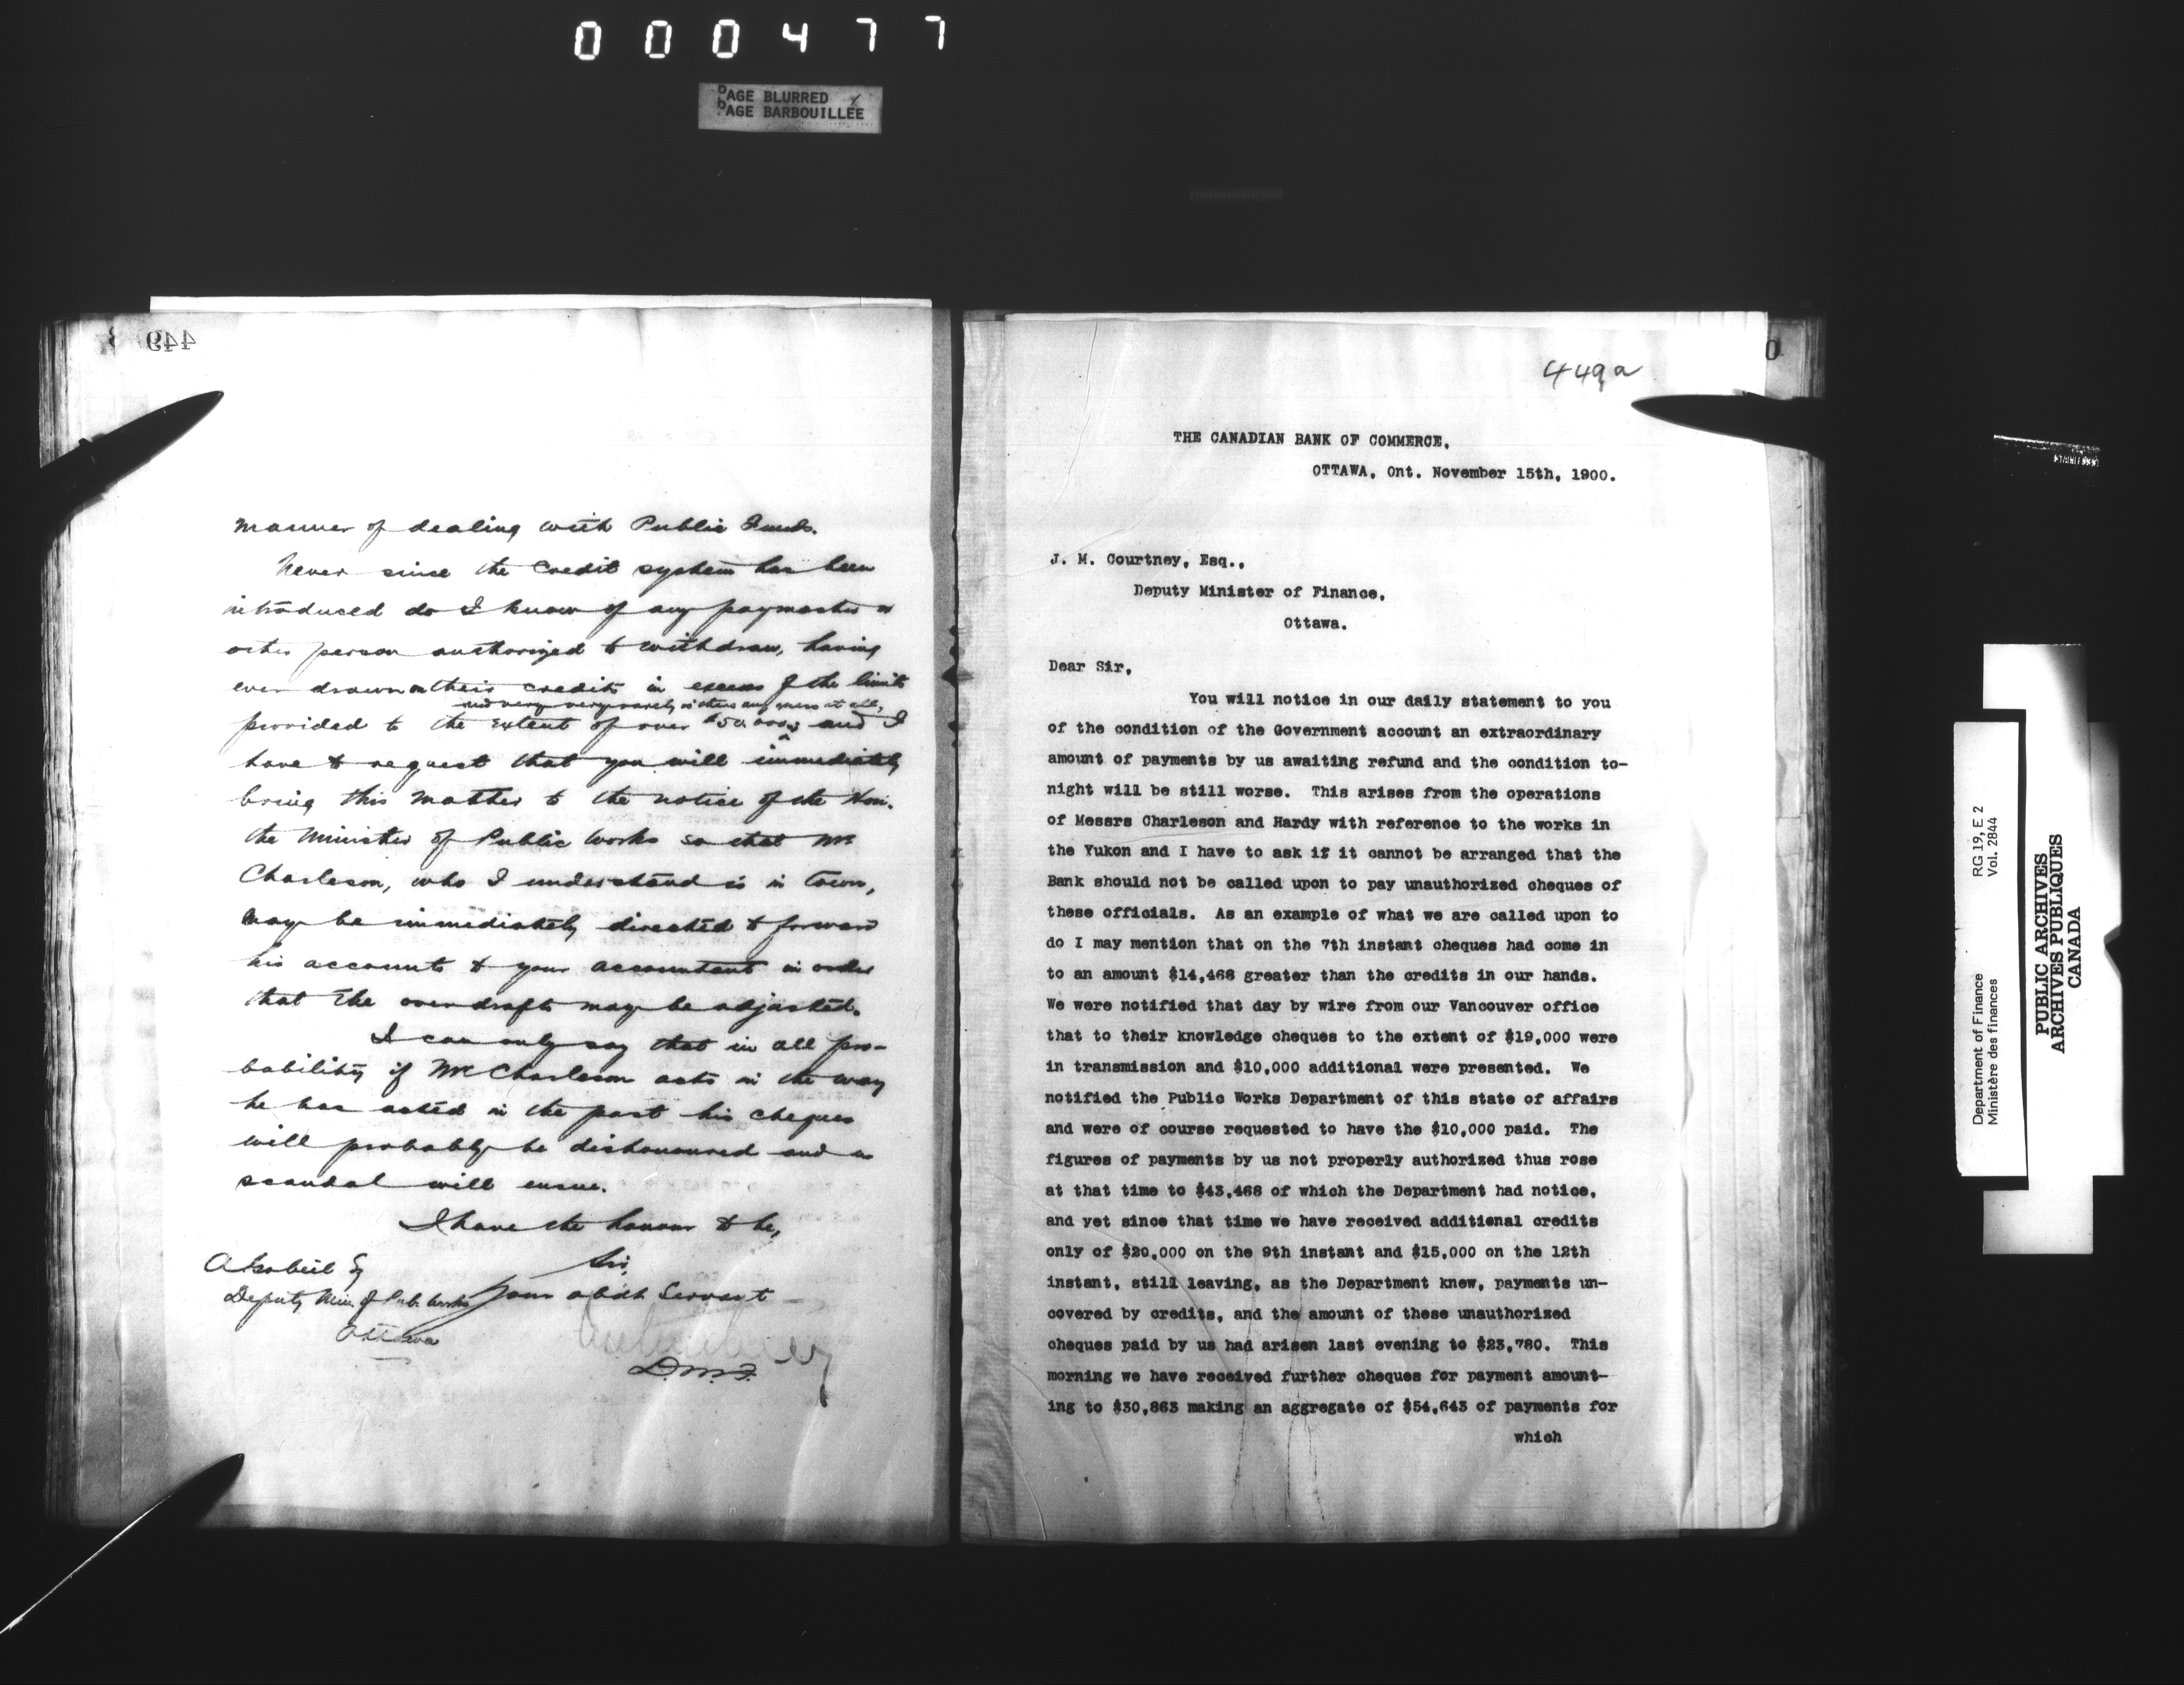 000477
PAGE BLURRED
PAGE BARBOUILLÉE
449
manner of dealing with Public Funds.
Never since the Credit system has been
introduced do I know of any paymaster or
other person authorized to withdraw, having
ever drawn on their credits in excess of the limit
and very very rarely is there any excess at all,
provided to the extent of over $50,000, and I
have to request that you will immediately
bring this matter to the notice of the Hon.
the Minister of Public Works so that Mr
Charleson, who I understand is in town,
may be immediately directed to forward
his accounts to your accountant in order
that the overdraft may be adjusted.
I can only say that in all pro-
bability if Mr Charleson acts in the way
he has acted in the past his cheques
will probably be dishonoured and a
scandal will ensue.
I have the honour to be,
Sir,
Your obdt Servant
A Gobeil Eq
Deputy Min. of Pub. Works
Ottawa
D.M.F.
449a
0
THE CANADIAN BANK OF COMMERCE,
OTTAWA, Ont. November 15th, 1900.
J. M. Courtney, Esq.,
Deputy Minister of Finance,
Ottawa.
Dear Sir,
You will notice in our daily statement to you
of the condition of the Government account an extraordinary
amount of payments by us awaiting refund and the condition to-
night will be still worse. This arises from the operations
of Messrs Charleson and Hardy with reference to the works in
the Yukon and I have to ask if it cannot be arranged that the
Bank should not be called upon to pay unauthorized cheques of
these officials. As an example of what we are called upon to
do I may mention that on the 7th instant cheques had come in
to an amount $14,468 greater than the credits in our hands.
We were notified that day by wire from our Vancouver office
that to their knowledge cheques to the extent of $19,000 were
in transmission and $10,000 additional were presented. We
notified the Public Works Department of this state of affairs
and were of course requested to have the $10,000 paid. The
figures of payments by us not properly authorized thus rose
at that time to $43,468 of which the Department had notice,
and yet since that time we have received additional credits
only of $20,000 on the 9th instant and $15,000 on the 12th
instant, still leaving, as the Department knew, payments un-
covered by credits, and the amount of these unauthorized
cheques paid by us had arisen last evening to $23,780. This
morning we have received further cheques for payment amount-
ing to $30,863 making an aggregate of $54,643 of payments for
which
Department of Finance
Ministère des finances
RG 19, E 2
Vol. 2844
PUBLIC ARCHIVES
ARCHIVES PUBLIQUES
CANADA